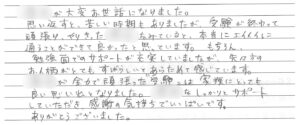 が大変お世話になりました。
思い返すと、苦しい時期もありましたが、受験が終わって
頑張り、やりきた なれていると、本当にエイメイに
通うことができて良かったと思っています。もちろん、
勉強面でのサポートが充実していましたが、先々方の
お人柄がとてもすばらしいとあらためて感じています。
が全力で頑張った受験は家族にとっても
良い思い出となりました。 なしっかりとサポート
していただき感謝の気持ちでいっぱいです。
ありがとうございました。